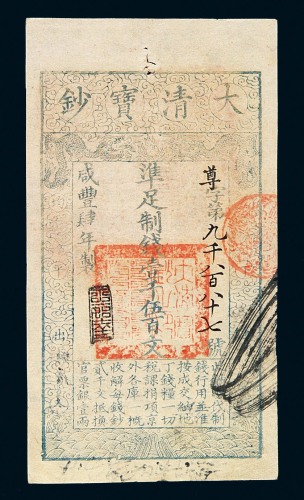 大清寶鈔
尊字第九千八百八十七號
準足制錢壹千伍百文
咸豐肆年製
此鈔即代制
錢行用並准
按成交納地
丁錢糧一切
稅課捐項京
外各庫一概
收解每錢鈔
貳千文抵換
官票銀壹兩